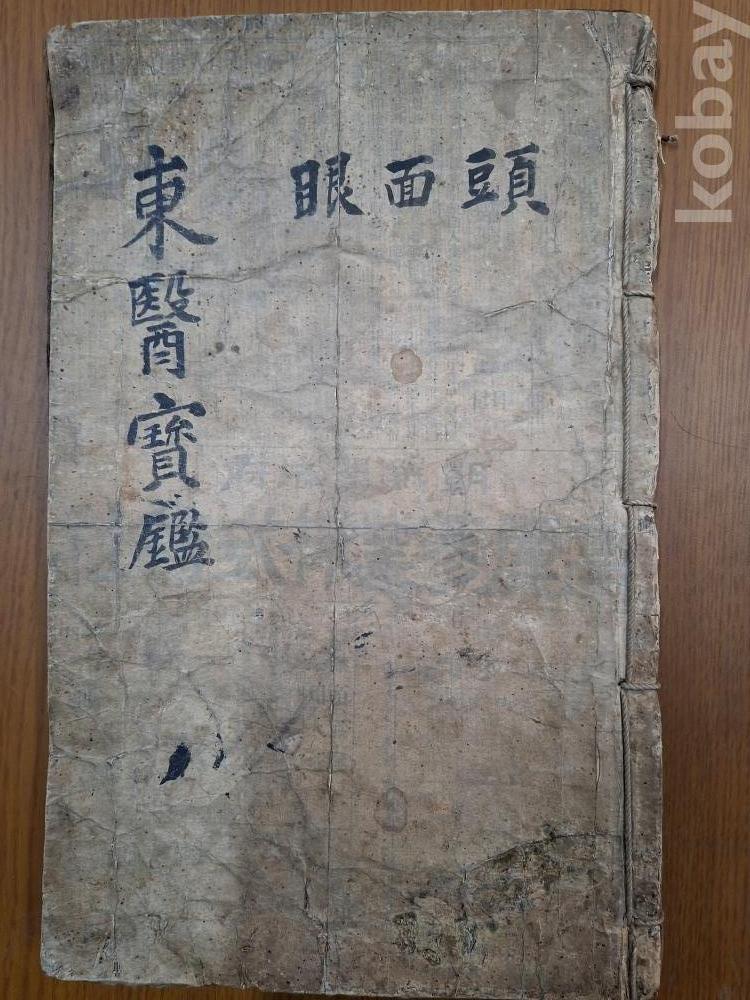 頭面眼
東醫寶鑑
八
kobay